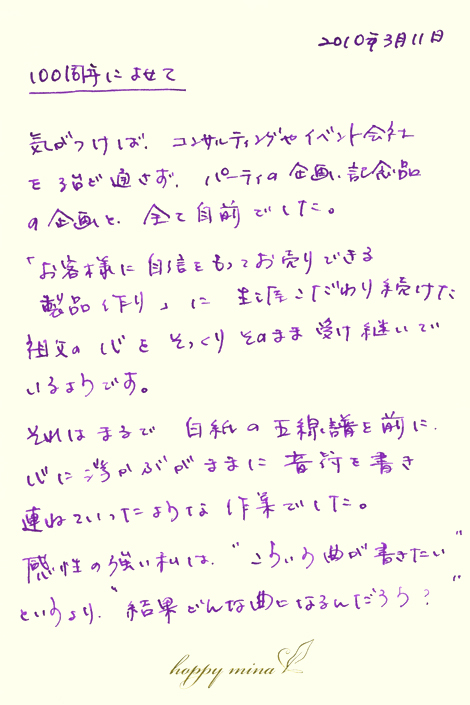 2010年3月11日
100周年によせて
気がつけば、コンサルティングやイベント会社
を一切通さず、パーティの企画、記念品
の企画と、全て自前でした。
「お客様に自信をもってお売りできる
製品作り」に生涯こだわり続けた
祖父の心をそっくりそのまま受け継いで
いるようです。
それはまるで白紙の五線譜を前に、
心に浮かぶがままに音符を書き
連ねていったような作業でした。
感性の強い私は、“こういう曲が書きたい”
というより、“結果どんな曲になるんだろう？”
hoppy mina